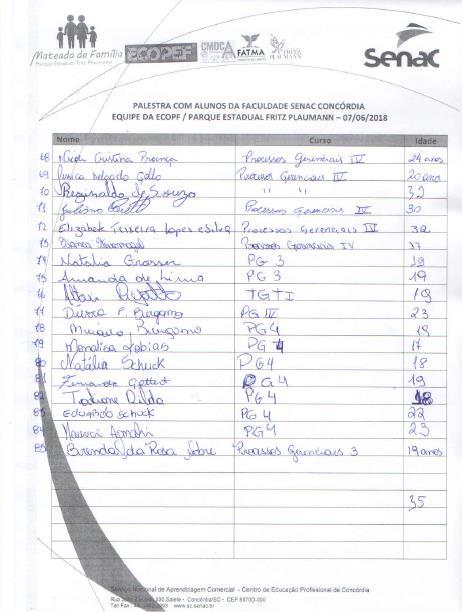 Mateada da Família
Parque Estadual Fritz Plaumann
ECOPEF
CMDCA
FATMA
FRITZ PLAUMANN
Senac
PALESTRA COM ALUNOS DA FACULDADE SENAC CONCÓRDIA
EQUIPE DA ECOPF / PARQUE ESTADUAL FRITZ PLAUMANN – 07/06/2018
Nome Curso Idade
68 Cristina Processos Gerenciais IV 24 anos
69 Gallo Processos Gerenciais IV 20 anos
70 Reginaldo de Souza " " 32
71 Processos Gerenciais IV 30
72 Elizabete Teixeira Lopes e Silva Processos Gerenciais IV 32
73 Bianca Processos Gerenciais IV 17
74 Natalia Grasser PG 3 19
75 Amanda de Lima PG 3 19
76 TGTI 19
77 PG IV 23
78 PG 4 19
79 PG 4 17
80 Natália Schuck PG4 18
81 Fernanda PG 4 19
82 PG 4 18
83 Eduardo Schuck PG 4 22
84 PG 4 23
85 Brenda da Rosa Processos Gerenciais 3 19 anos
35
Serviço Nacional de Aprendizagem Comercial - Centro de Educação Profissional de Concórdia
Concórdia/SC - CEP
www.sc.senac.br